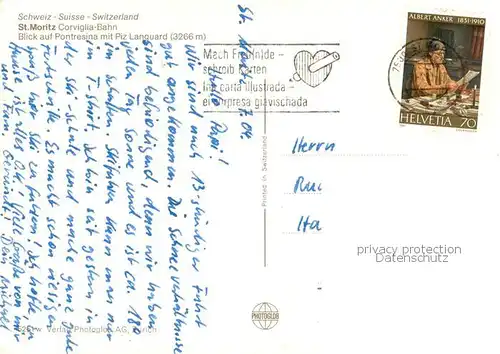 Schweiz - Suisse - Switzerland
St. Moritz Corviglia-Bahn
Blick auf Pontresina mit Piz Languard (3266 m)
Mach Freunde -
schreib Karten
Ina carta illustrada -
empresa giavischada
ALBERT ANKER 1831-1910
HELVETIA 70
St. Moritz,
Lieber Papi!
Wir sind nach 13 stündiger Fahrt
gut angekommen. Die Schneeverhältnisse
sind befriedigend, denn wir haben
jeden Tag Sonne und es ist ca. 18°
im Schatten. Skifahren kann man nur
im T-Shirt. Ich bin seit gestern in
der Ski-schule und mache ganz gute
Fortschritte. Es macht schon riesigen
Spaß Ski zu fahren! Ich hoffe, zu
Hause ist alles O.K.! Viele Grüße von mir
und Dein Michael
Herrn
Printed in Switzerland
PHOTOGLOB
Verlag Photoglob AG, Zürich
privacy protection
Datenschutz